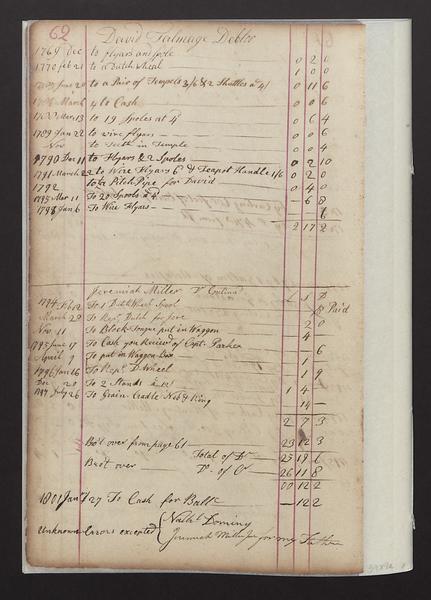 62 David Talmage Debter
1769 Dec to flyars and spole 0 2 0
1770 feb 21 to a dutch wheal 1 0 0
June 20 to a Pair of Tempels 2/6 & 2 Shuttles a 4/ 0 11 6
March 4 to Cash 0 0 6
Mar 13 to 19 Spoles at 4d 0 6 4
1789 Jan 22 to wire flyars 0 0 6
Nov to Teeth in Temple 0 0 4
1790 Dec 11 to Flyars & 2 Spoles 0 2 10
1791 March 22 to Wire Flyars 6d & Teapot Handle 1/6 0 2 0
1792 to a Pitch Pipe for David 0 4 0
1795 Mar 11 To 20 Spools a 4d 6 8
1798 Jan 6 To Wire Flyars 6
2 17 2
Jeremiah Miller Dr L S D
1794 Feb 12 To 1 Dutch Wheel Spool Paid
March 29 To Repg Dutch for 2 0
Nov 11 To Block Tongue put in Waggon 4
1795 June 17 To Cash you Receivd of Capt Parker 6
April 9 To put in Waggon Box 1
1796 Jan 16 To Repg D Wheel 1 9
Dec 20 To 2 Stands 1 4
1797 July 26 To Grain Cradle Neb & Ring 14
2 7 3
Bot over from page 61 23 12 3
Total of Dr 25 19 6
Brot over Do of Cr 26 11 8
00 12 2
1801 Jany 27 To Cash for Ballc 12 2
Unknown Errors excepted Nathl Dominy
Jeremiah Miller Jur for my Father